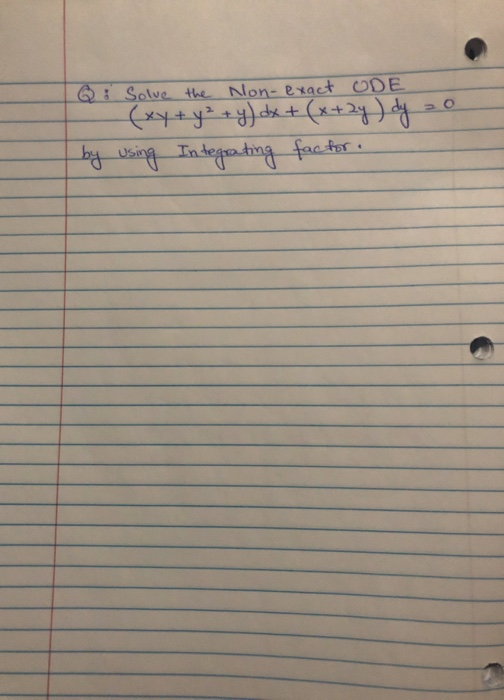 Q: Solve the Non-exact ODE
(xy + y² + y) dx + (x + 2y) dy = 0
by using Integrating factor.